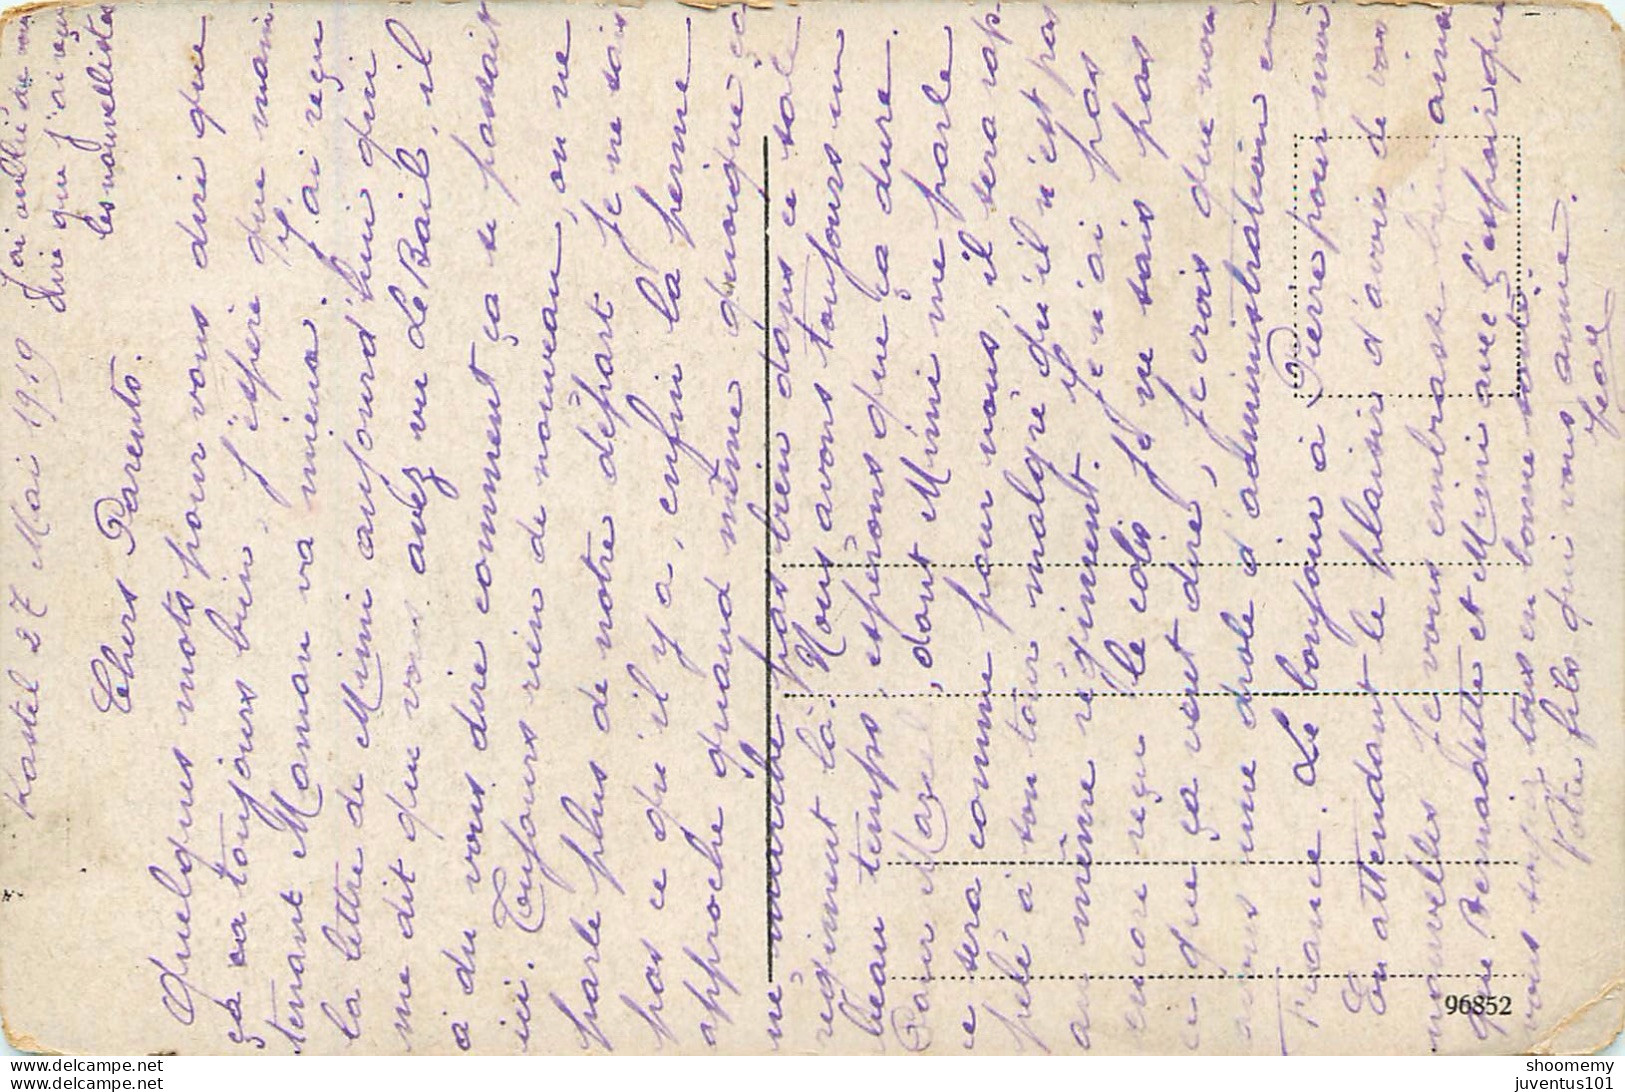 Kastel 27 Mai 1919
J'ai oublié de vous
dire que j'ai reçu
les nouvellistes
Chers Parents.
Quelques mots pour vous dire que
ça va toujours bien, j'espère que main-
tenant Maman va mieux. J'ai reçu
la lettre de Mimi aujourd'hui qui
me dit que vous avez vu Le Bail, il
a du vous dire comment ça se passait
ici. Toujours rien de nouveau, on ne
parle plus de notre départ je ne sais
pas ce qu'il y a, enfin la perme
approche quand même quoique ça
ne marche pas bien dans ce sale
régiment là. Nous avons toujours un
beau temps, espérons que ça dure.
Pour Mazel, dont Mimi me parle
ce sera comme pour nous, il sera rap-
pelé à son tour malgré qu'il n'est pas
au même régiment. Je n'ai pas
encore reçu le colis je ne sais pas
ce que ça veut dire, je crois que nous
avons une drole d'administration en
France. Le bonjour à Pierre pour moi
En attendant le plaisir d'avoir de vos
nouvelles je vous embrasse bien ainsi
que Bernadette et Mimi avec l'espoir que
vous soyez tous en bonne santé
Votre fils qui vous aime.
Jean
96852
shoomemy
juventus101